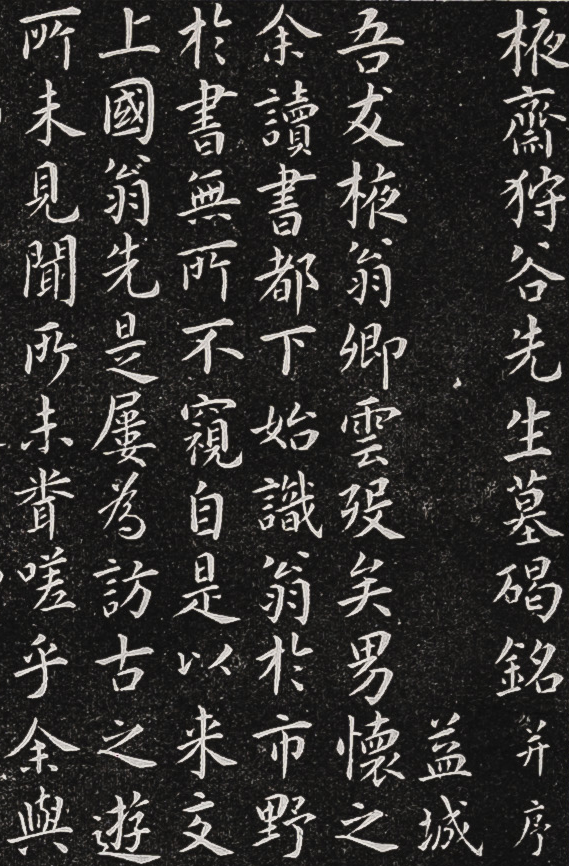 棭齋狩谷先生墓碣銘并序
益城
吾友棭翁卿雲歿矣男懷之
余讀書都下始識翁於市野
於書無所不窺自是以來交
上國翁先是屢為訪古之遊
所未見聞所未嘗嗟乎余與